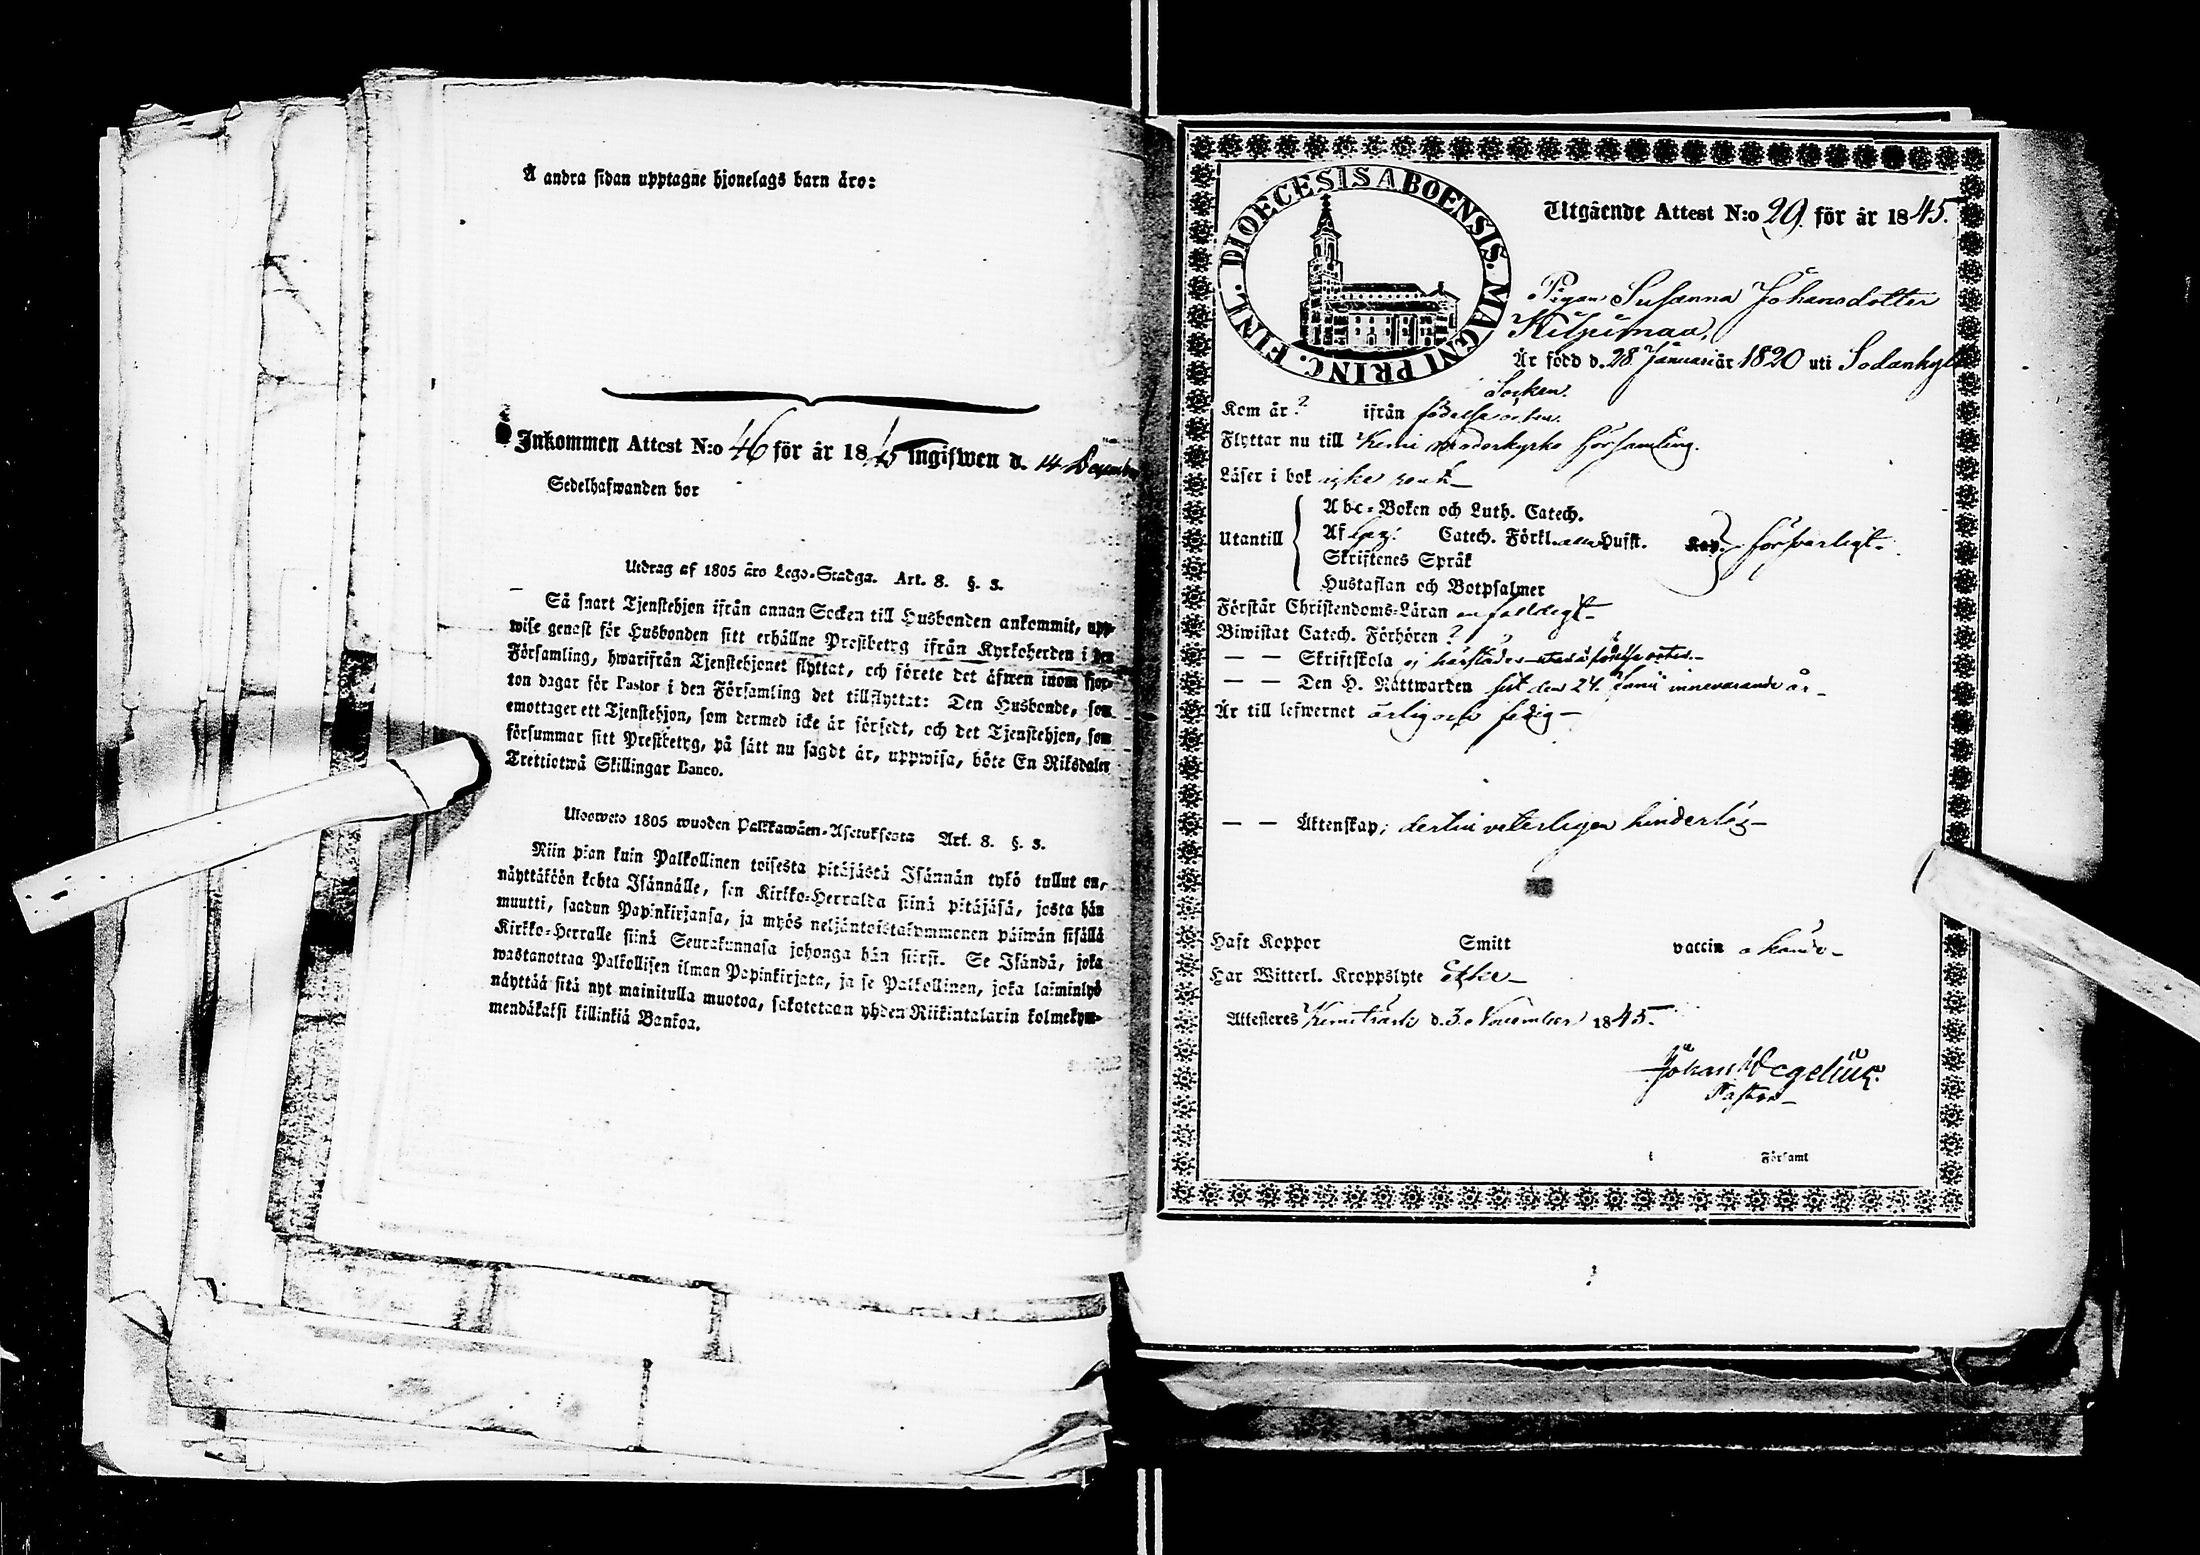 Å andra sidan upptagne hjonelags barn äro:
Inkommen Attest N:o 46 för år 1845 ingifwen d. 14 December
Sedelhafwanden bor
Utdrag af 1805 års Lego-Stadga. Art. 8. §. 3.
Så snart Tjenstehjon ifrån annan Socken till Husbonden ankommit, upp-
wise genast för Husbonden sitt erhållne Prestbetyg ifrån Kyrkoherden i den
Församling, hwarifrån Tjenstehjonet flyttat, och förete det äfwen inom fjor-
ton dagar för Pastor i den Församling det tillflyttat: Den Husbonde, som
emottager ett Tjenstehjon, som dermed icke är försedt, och det Tjenstehjon, som
försummar sitt Prestbetyg, på sätt nu sagdt är, uppwisa, böte En Riksdaler
Trettiotwå Skillingar Banco.
Ulosweto 1805 wuoden Palkkawäen-Asetuksesta Art. 8. §. 3.
Niin pian kuin Palkollinen toisesta pitäjästä Isännän tykö tullut on,
näyttäköön kohta Isännälle, sen Kirkko-Herralda siinä pitäjäsä, josta hän
muutti, saadun Papinkirjansa, ja myös neljäntoistakymmenen päiwän sisällä
Kirkko-Herralle siinä Seurakunnasa johonga hän siirsi. Se Isändä, joka
wastanottaa Palkollisen ilman Papinkirjata, ja se Palkollinen, joka laiminlyö
näyttää sitä nyt mainitulla muotoa, sakotetaan yhden Riikintalarin kolmekym-
mendäkaksi killinkiä Bankoa.
DIOECESIS ABOENSIS. MAGNI PRINC. FINL.
Utgående Attest N:o 29. för år 1845.
Pigan Susanna Johansdotter
Kilpimaa,
Är född d. 28 Januari år 1820 uti Sodankylä
Socken.
Kom år ? ifrån födelseorten.
Flyttar nu till Kemi moderkyrko församling.
Läser i bok
Abc-Boken och Luth. Catech.
Utantill Af Catech. Förkl. Husst. försvarligt.
Skriftenes Språk
Hustaflan och Botpsalmer
Förstår Christendoms-Läran enfaldigt
Biwistat Catech. Förhören ?
— — Skriftskola ej härstädes
— — Den H. Nattwarden sist den 24. Junii innevarande år
Är till lefwernet ärlig och sedig
— — Äktenskap; veterligen hinderlös
Haft Koppor Smitt vaccin
Har Witterl. Kroppslyte Icke
Attesteres Kemiträsk d. 3. November 1845.
Johan Wegelius.
Pastor
i Församl